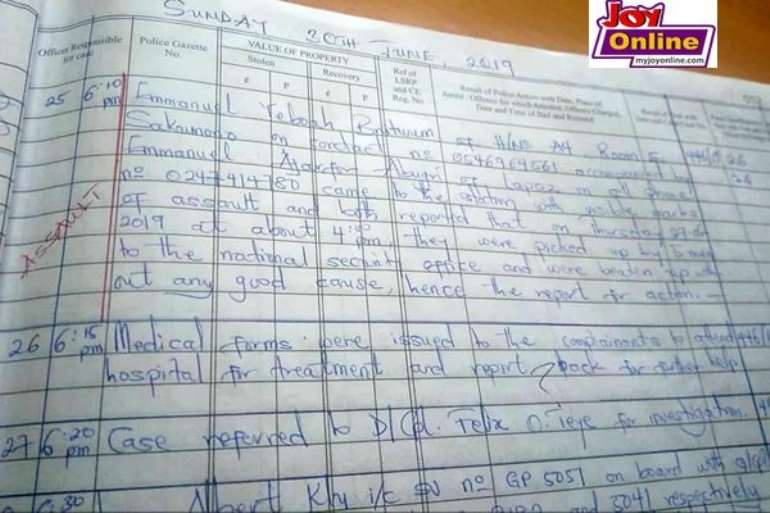 JOY
Online
myjoyonline.com
SUNDAY 30TH JUNE, 2019
Officer Responsible for case
Police Gazette No.
VALUE OF PROPERTY
Stolen
Recovery
¢ P ¢ P
Ref of
and CE
Reg. No
Result of Police Action with Date, Place of
Date and Time of Bail and Remand
25 6:10 pm Emmanuel Yeboah of H/No A4 Room 5
Sakumono on contact nº 0546964561 accompanied by 26
Emmanuel of Lapaz on cell phone
nº 0247914780 came to the station with visible marks
ASSAULT
of assault and both reported that on Thursday 27th
2019 at about 4:00pm, they were picked up by 5 men
to the national security office and were beaten up with
out any good cause, hence the report for action. —
26 6:15 pm Medical forms were issued to the complainants to attend
hospital for treatment and report back for further help
27 6:20 pm Case referred to D/Cpl. Felix O. Teye for investigation.
6:30 Albert i/c SV nº GP 5051 on board with
and 3041 respectively